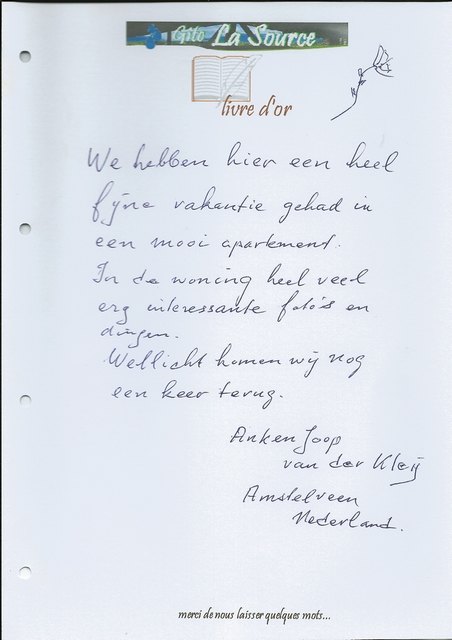 Gite La Source
livre d'or
We hebben hier een heel
fijne vakantie gehad in
een mooi apartement.
In de woning heel veel
erg interessante foto's en
dingen.
Wellicht komen wij nog
een keer terug.
Ank en Joop
van der Kleij
Amstelveen
Nederland.
merci de nous laisser quelques mots...